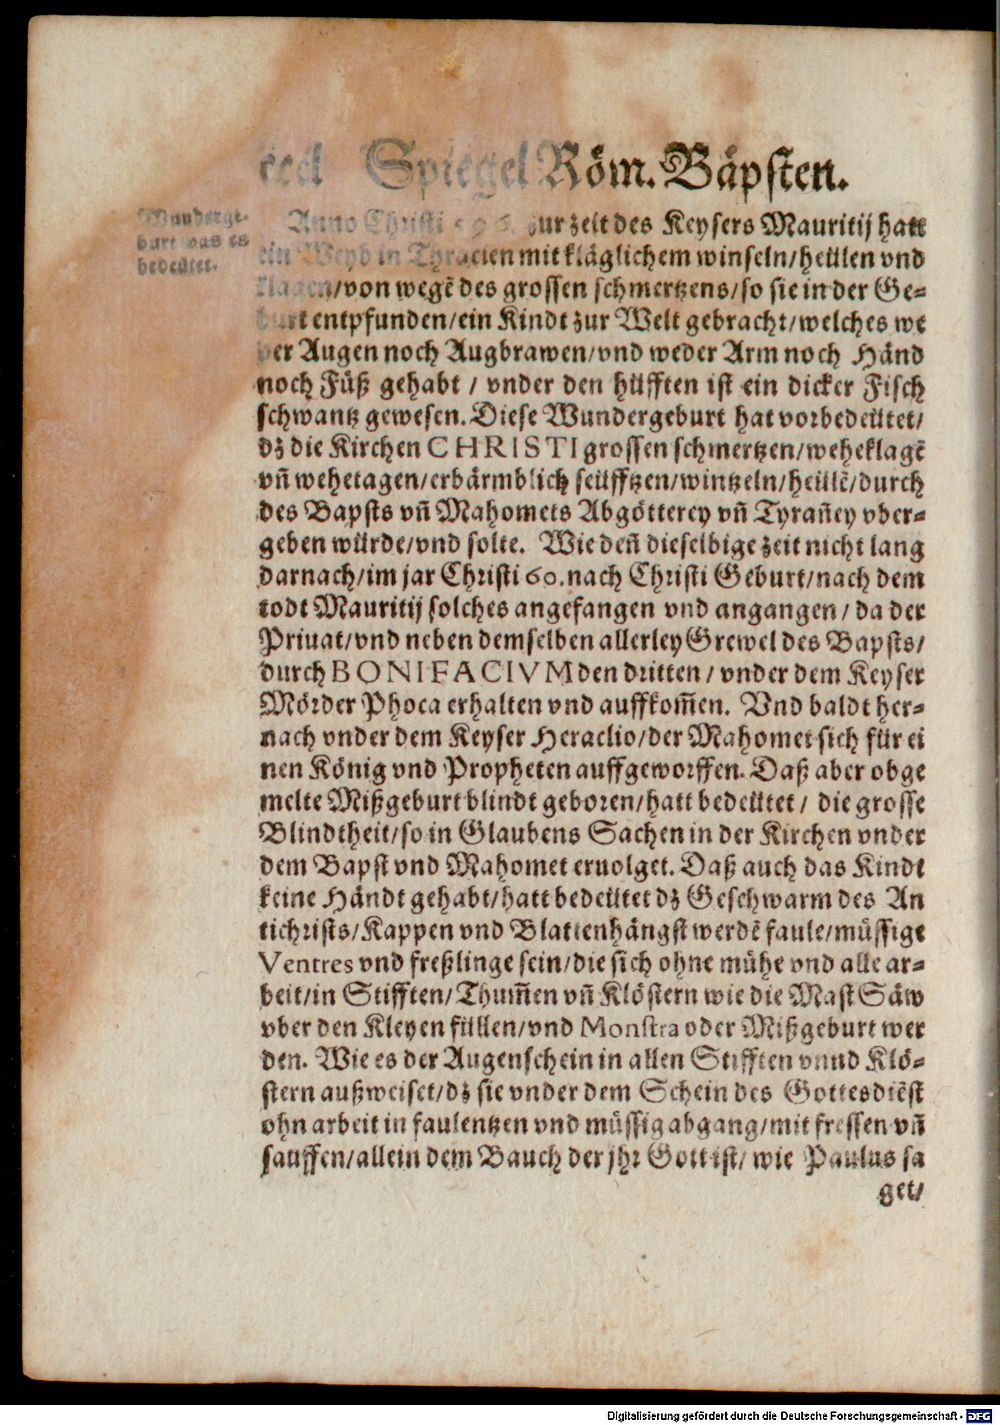 Spiegel Röm. Bäpsten.
Wunderge-
burt was es
bedeütet.
Anno Christi 596. zur zeit des Keysers Mauritij hatt
ein Weyb in Thracien mit kläglichem winseln/heülen vnd
klagen/von wegẽ des grossen schmertzens/so sie in der Ge-
burt entpfunden/ein Kindt zur Welt gebracht/welches we
der Augen noch Augbrawen/vnd weder Arm noch Händ
noch Füß gehabt / vnder den hüfften ist ein dicker Fisch
schwantz gewesen. Diese Wundergeburt hat vorbedeütet/
dz die Kirchen CHRISTI grossen schmertzen/weheklagẽ
vñ wehetagen/erbärmblich seüfftzen/wintzeln/heülẽ/durch
des Bapsts vñ Mahomets Abgötterey vñ Tyrañey vber-
geben würde/vnd solte. Wie deñ dieselbige zeit nicht lang
darnach/im jar Christi 60. nach Christi Geburt/nach dem
todt Mauritij solches angefangen vnd angangen/da der
Priuat/vnd neben demselben allerley Grewel des Bapsts/
durch BONIFACIVM den dritten/vnder dem Keyser
Mörder Phoca erhalten vnd auffkom̃en. Vnd baldt her-
nach vnder dem Keyser Heraclio/der Mahomet sich für ei
nen König vnd Propheten auffgeworffen. Daß aber obge
melte Mißgeburt blindt geboren/hatt bedeütet/ die grosse
Blindtheit/so in Glaubens Sachen in der Kirchen vnder
dem Bapst vnd Mahomet eruolget. Daß auch das Kindt
keine Händt gehabt/hatt bedeütet dz Geschwarm des An
tichrists/Kappen vnd Blattenhängst werdẽ faule/müssige
Ventres vnd freßlinge sein/die sich ohne mühe vnd alle ar-
beit/in Stifften/Thum̃en vñ Klöstern wie die Mast Säw
vber den Kleyen füllen/vnd Monstra oder Mißgeburt wer
den. Wie es der Augenschein in allen Stifften vnnd Klö-
stern außweiset/dz sie vnder dem Schein des Gottesdiẽst
ohn arbeit in faulentzen vnd müssigabgang/mit fressen vñ
sauffen/allein dem Bauch der jhr Gott ist/ wie Paulus sa
get/
Digitalisierung gefördert durch die Deutsche Forschungsgemeinschaft - DFG